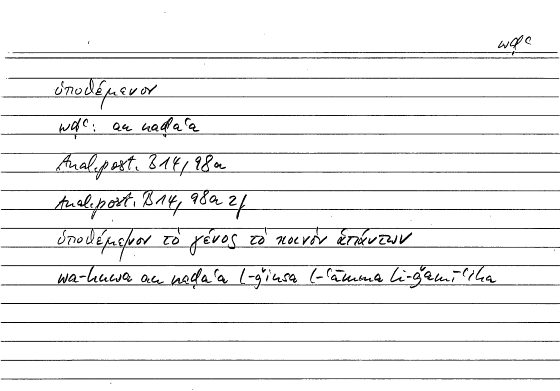 wḍʿ
ὑποθέμενον
wḍʿ: an naḍaʿa
Anal.post. B14, 98a
Anal.post. B14, 98a 2f
ὑποθέμενον τὸ γένος τὸ κοινὸν ἁπάντων
wa-huwa an naḍaʿa l-ǧinsa l-ʿāmma li-ǧamīʿihā